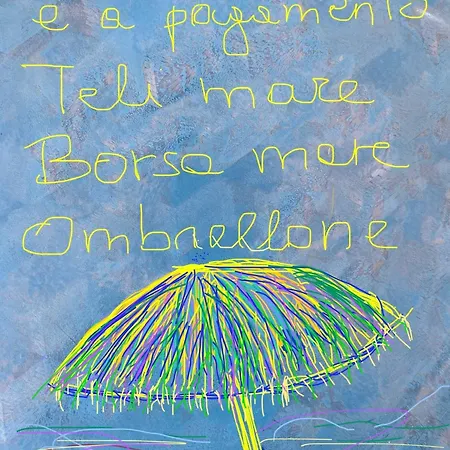 e a pagamento
Teli mare
Borsa mare
Ombrellone